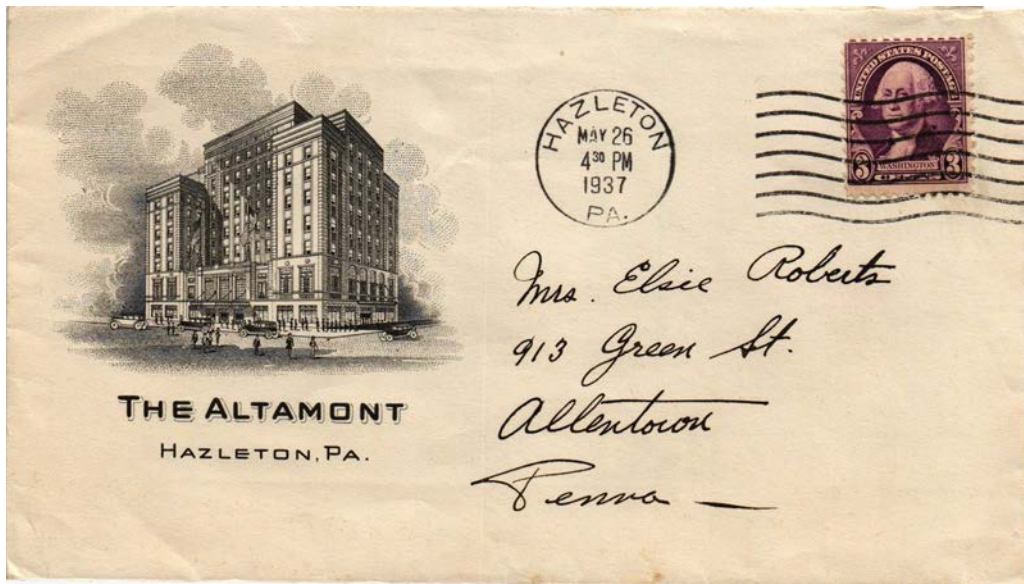 THE ALTAMONT
HAZLETON, PA.
HAZLETON
MAY 26
4 30 PM
1937
PA.
UNITED STATES POSTAGE
3 WASHINGTON 3
Mrs. Elsie Roberts
913 Green St.
Allentown
Penna —